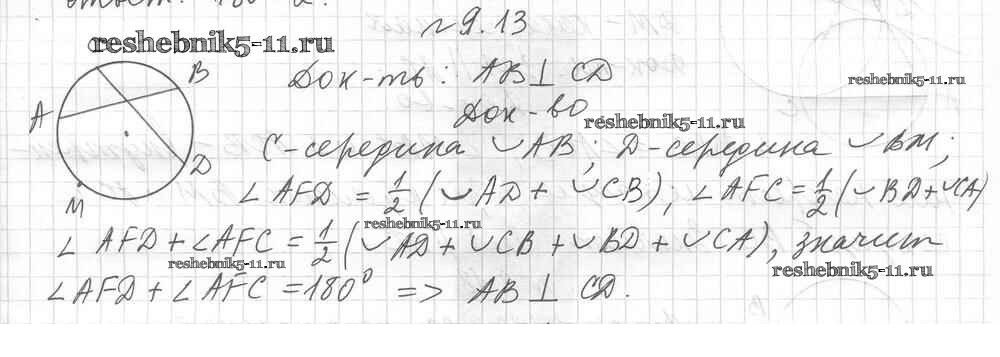 №9.13
reshebnik5-11.ru
Док-ть: AB⊥CD
reshebnik5-11.ru
Док-во
reshebnik5-11.ru
A
B
D
M
C-середина ◡AB; D-середина ◡BM;
∠AFD = 1/2 (◡AD + ◡CB); ∠AFC = 1/2 (◡BD + ◡CA)
reshebnik5-11.ru
∠AFD + ∠AFC = 1/2 (◡AD + ◡CB + ◡BD + ◡CA), значит
reshebnik5-11.ru
reshebnik5-11.ru
∠AFD + ∠AFC = 180° => AB⊥CD.